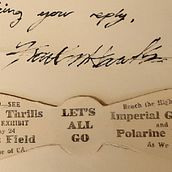 ing your reply,
...SEE
Thrills
EXHIBIT
y 24
Field
or of CA.
LET'S
ALL
GO
Reach the High
Imperial G
and
Polarine
As We